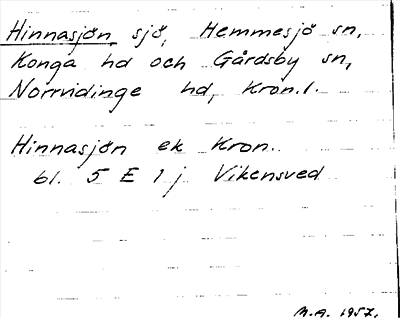 Hinnasjön, sjö, Hemmesjö sn,
Konga hd och Gårdsby sn,
Norrvidinge hd, Kron.l.
Hinnasjön ek Kron.
bl. 5 E 1 j Vikensved
M.A. 1957.